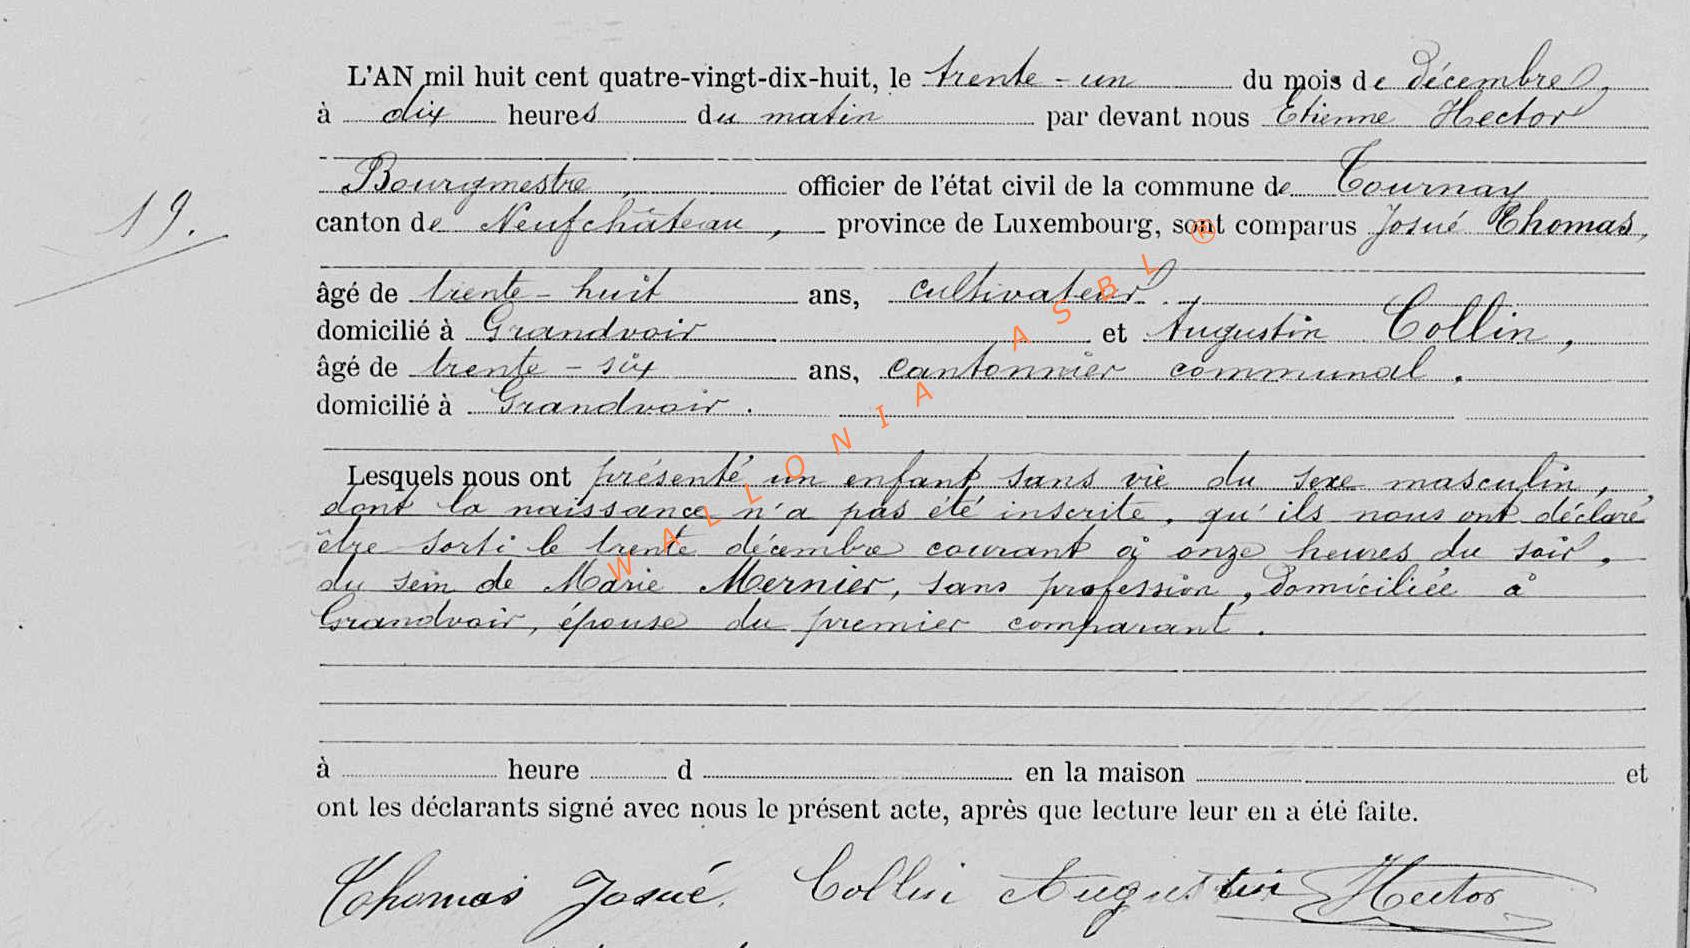 L'AN mil huit cent quatre-vingt-dix-huit, le trente-un du mois de décembre,
à dix heures du matin par devant nous Etienne Hector
Bourgmestre, officier de l'état civil de la commune de Tournay
19.
canton de Neufchâteau, province de Luxembourg, sont comparus Josué Thomas,
âgé de trente-huit ans, cultivateur.
domicilié à Grandvoir et Augustin Collin,
âgé de trente-six ans, cantonnier communal.
domicilié à Grandvoir.
Lesquels nous ont présenté un enfant sans vie du sexe masculin,
dont la naissance n'a pas été inscrite, qu'ils nous ont déclaré
être sorti le trente décembre courant à onze heures du soir,
du sein de Marie Mernier, sans profession, domiciliée à
Grandvoir, épouse du premier comparant.
à heure d en la maison et
ont les déclarants signé avec nous le présent acte, après que lecture leur en a été faite.
Thomas Josué. Collin Augustin Hector
WALLONIA ASBL ®